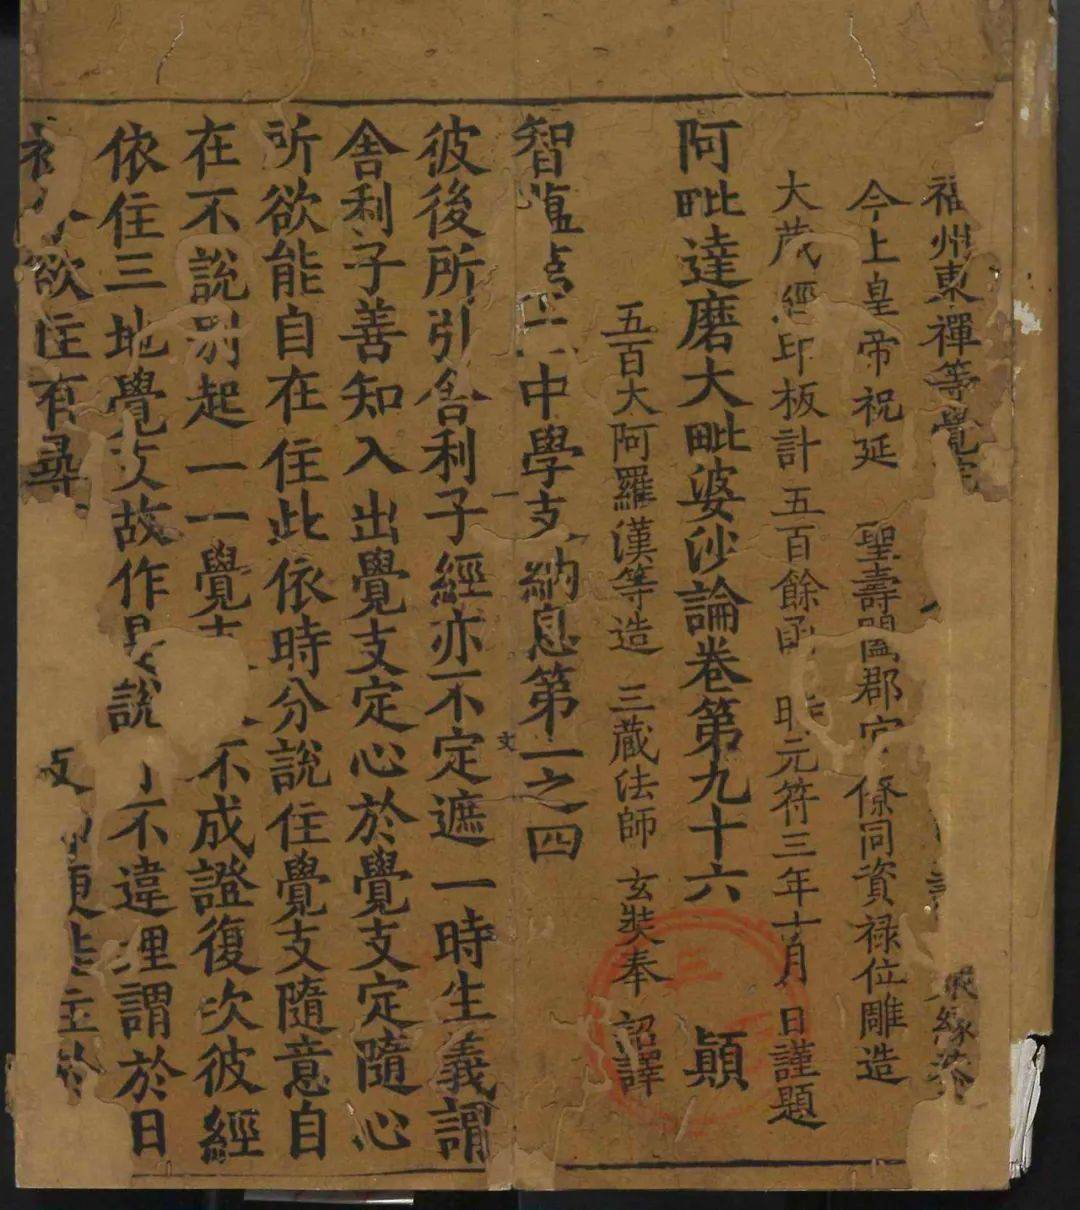 福州東禪等覺
今上皇帝祝延　聖壽闔郡官僚同資祿位雕造
大藏經印板計五百餘函　時元符三年十月　日謹題
阿毗達磨大毗婆沙論卷第九十六　顛
五百大阿羅漢等造　三藏法師　玄奘奉　詔譯
智蘊第二中學支納息第一之四
彼後所引舍利子經亦不定遮一時生義謂
舍利子善知入出覺支定心於覺支定隨心
所欲能自在住此依時分說住覺支隨意自
在不說別起一一覺支不成證復次彼經
依住三地覺支故作是說不違理謂於日
初分欲住有尋